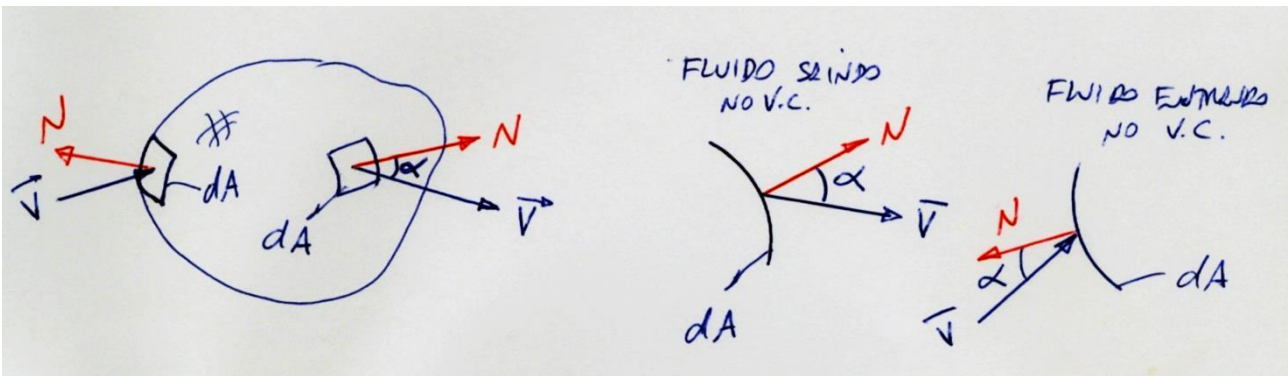 N
V
dA
dA
α
N
V
FLUIDO SAINDO
NO V.C.
N
α
V
dA
FLUIDO ENTRANDO
NO V.C.
N
α
V
dA